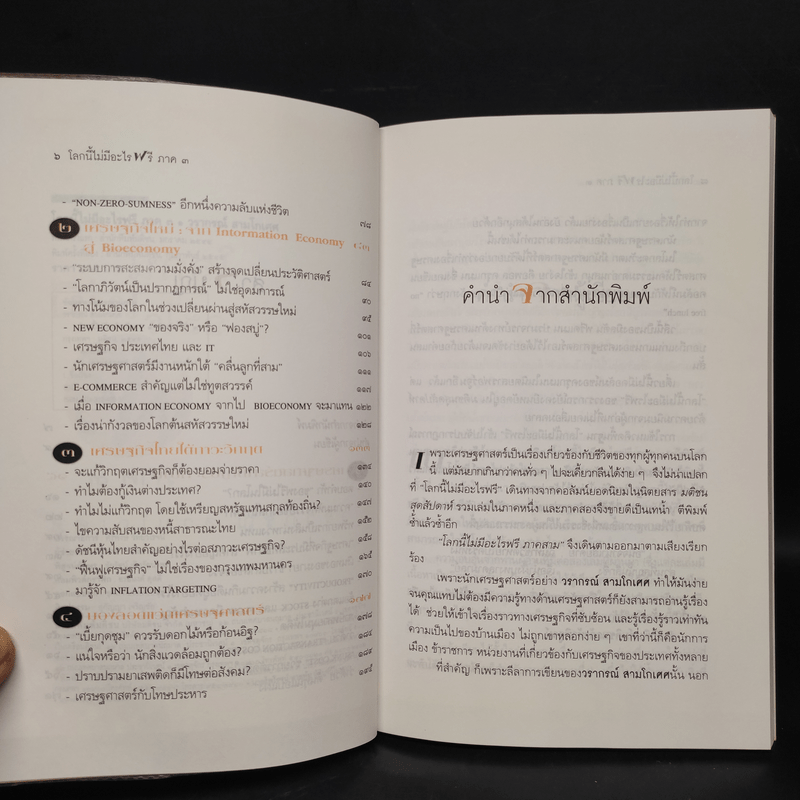 ๖ โลกนี้ไม่มีอะไรฟรี ภาค ๓
- “NON-ZERO-SUMNESS” อีกหนึ่งความลับแห่งชีวิต ๗๘
๒ เศรษฐกิจใหม่ : จาก Information Economy ๘๓
สู่ Bioeconomy
- “ระบบการสะสมความมั่งคั่ง” สร้างจุดเปลี่ยนประวัติศาสตร์ ๘๔
- “โลกาภิวัตน์เป็นปรากฏการณ์” ไม่ใช่อุดมการณ์ ๙๐
- ทางโน้มของโลกในช่วงเปลี่ยนผ่านสู่สหัสวรรษใหม่ ๙๕
- NEW ECONOMY “ของจริง” หรือ “ฟองสบู่”? ๑๐๑
- เศรษฐกิจ ประเทศไทย และ IT ๑๐๖
- นักเศรษฐศาสตร์มีงานหนักใต้ “คลื่นลูกที่สาม” ๑๑๑
- E-COMMERCE สำคัญแต่ไม่ใช่ทูตสวรรค์ ๑๑๗
- เมื่อ INFORMATION ECONOMY จากไป BIOECONOMY จะมาแทน ๑๒๒
- เรื่องน่ากังวลของโลกต้นสหัสวรรษใหม่ ๑๒๘
๓ เศรษฐกิจไทยใต้ภาวะวิกฤต
- จะแก้วิกฤตเศรษฐกิจก็ต้องยอมจ่ายราคา ๑๓๔
- ทำไมต้องกู้เงินต่างประเทศ? ๑๔๐
- ทำไมไม่แก้วิกฤต โดยใช้เหรียญสหรัฐแทนสกุลท้องถิ่น? ๑๔๗
- ไขความสับสนของหนี้สาธารณะไทย ๑๕๒
- ดัชนีหุ้นไทยสำคัญอย่างไรต่อสภาวะเศรษฐกิจ? ๑๕๘
- “ฟื้นฟูเศรษฐกิจ” ไม่ใช่เรื่องของกรุงเทพมหานคร ๑๖๕
- มารู้จัก INFLATION TARGETING ๑๗๐
๔ มองลอดแว่นเศรษฐศาสตร์ ๑๗๗
- “เบี้ยกุดชุม” ควรรับดอกไม้หรือก้อนอิฐ? ๑๗๘
- แน่ใจหรือว่า นักสิ่งแวดล้อมถูกต้อง? ๑๘๔
- ปราบปรามยาเสพติดก็มีโทษต่อสังคม? ๑๘๙
- เศรษฐศาสตร์กับโทษประหาร ๑๙๕
คำนำจากสำนักพิมพ์
เพราะเศรษฐศาสตร์เป็นเรื่องเกี่ยวข้องกับชีวิตของทุกผู้ทุกคนบนโลก
นี้ แต่มันยากเกินกว่าคนทั่ว ๆ ไปจะเคี้ยวกลืนได้ง่าย ๆ จึงไม่น่าแปลก
ที่ “โลกนี้ไม่มีอะไรฟรี” เดินทางจากคอลัมน์ยอดนิยมในนิตยสาร มติชน
สุดสัปดาห์ รวมเล่มในภาคหนึ่ง และภาคสองจึงขายดีเป็นเทน้ำ ตีพิมพ์
ซ้ำแล้วซ้ำอีก
“โลกนี้ไม่มีอะไรฟรี ภาคสาม” จึงเดินตามออกมาตามเสียงเรียก
ร้อง
เพราะนักเศรษฐศาสตร์อย่าง วรากรณ์ สามโกเศศ ทำให้มันง่าย
จนคุณแทบไม่ต้องมีความรู้ทางด้านเศรษฐศาสตร์ก็ยังสามารถอ่านรู้เรื่อง
ได้ ช่วยให้เข้าใจเรื่องราวทางเศรษฐกิจที่ซับซ้อน และรู้เรื่องรู้ราวเท่าทัน
ความเป็นไปของบ้านเมือง ไม่ถูกเขาหลอกง่าย ๆ เขาที่ว่านี้ก็คือนักการ
เมือง ข้าราชการ หน่วยงานที่เกี่ยวข้องกับเศรษฐกิจของประเทศทั้งหลาย
ที่สำคัญ ก็เพราะลีลาการเขียนของวรากรณ์ สามโกเศศนั้น นอก